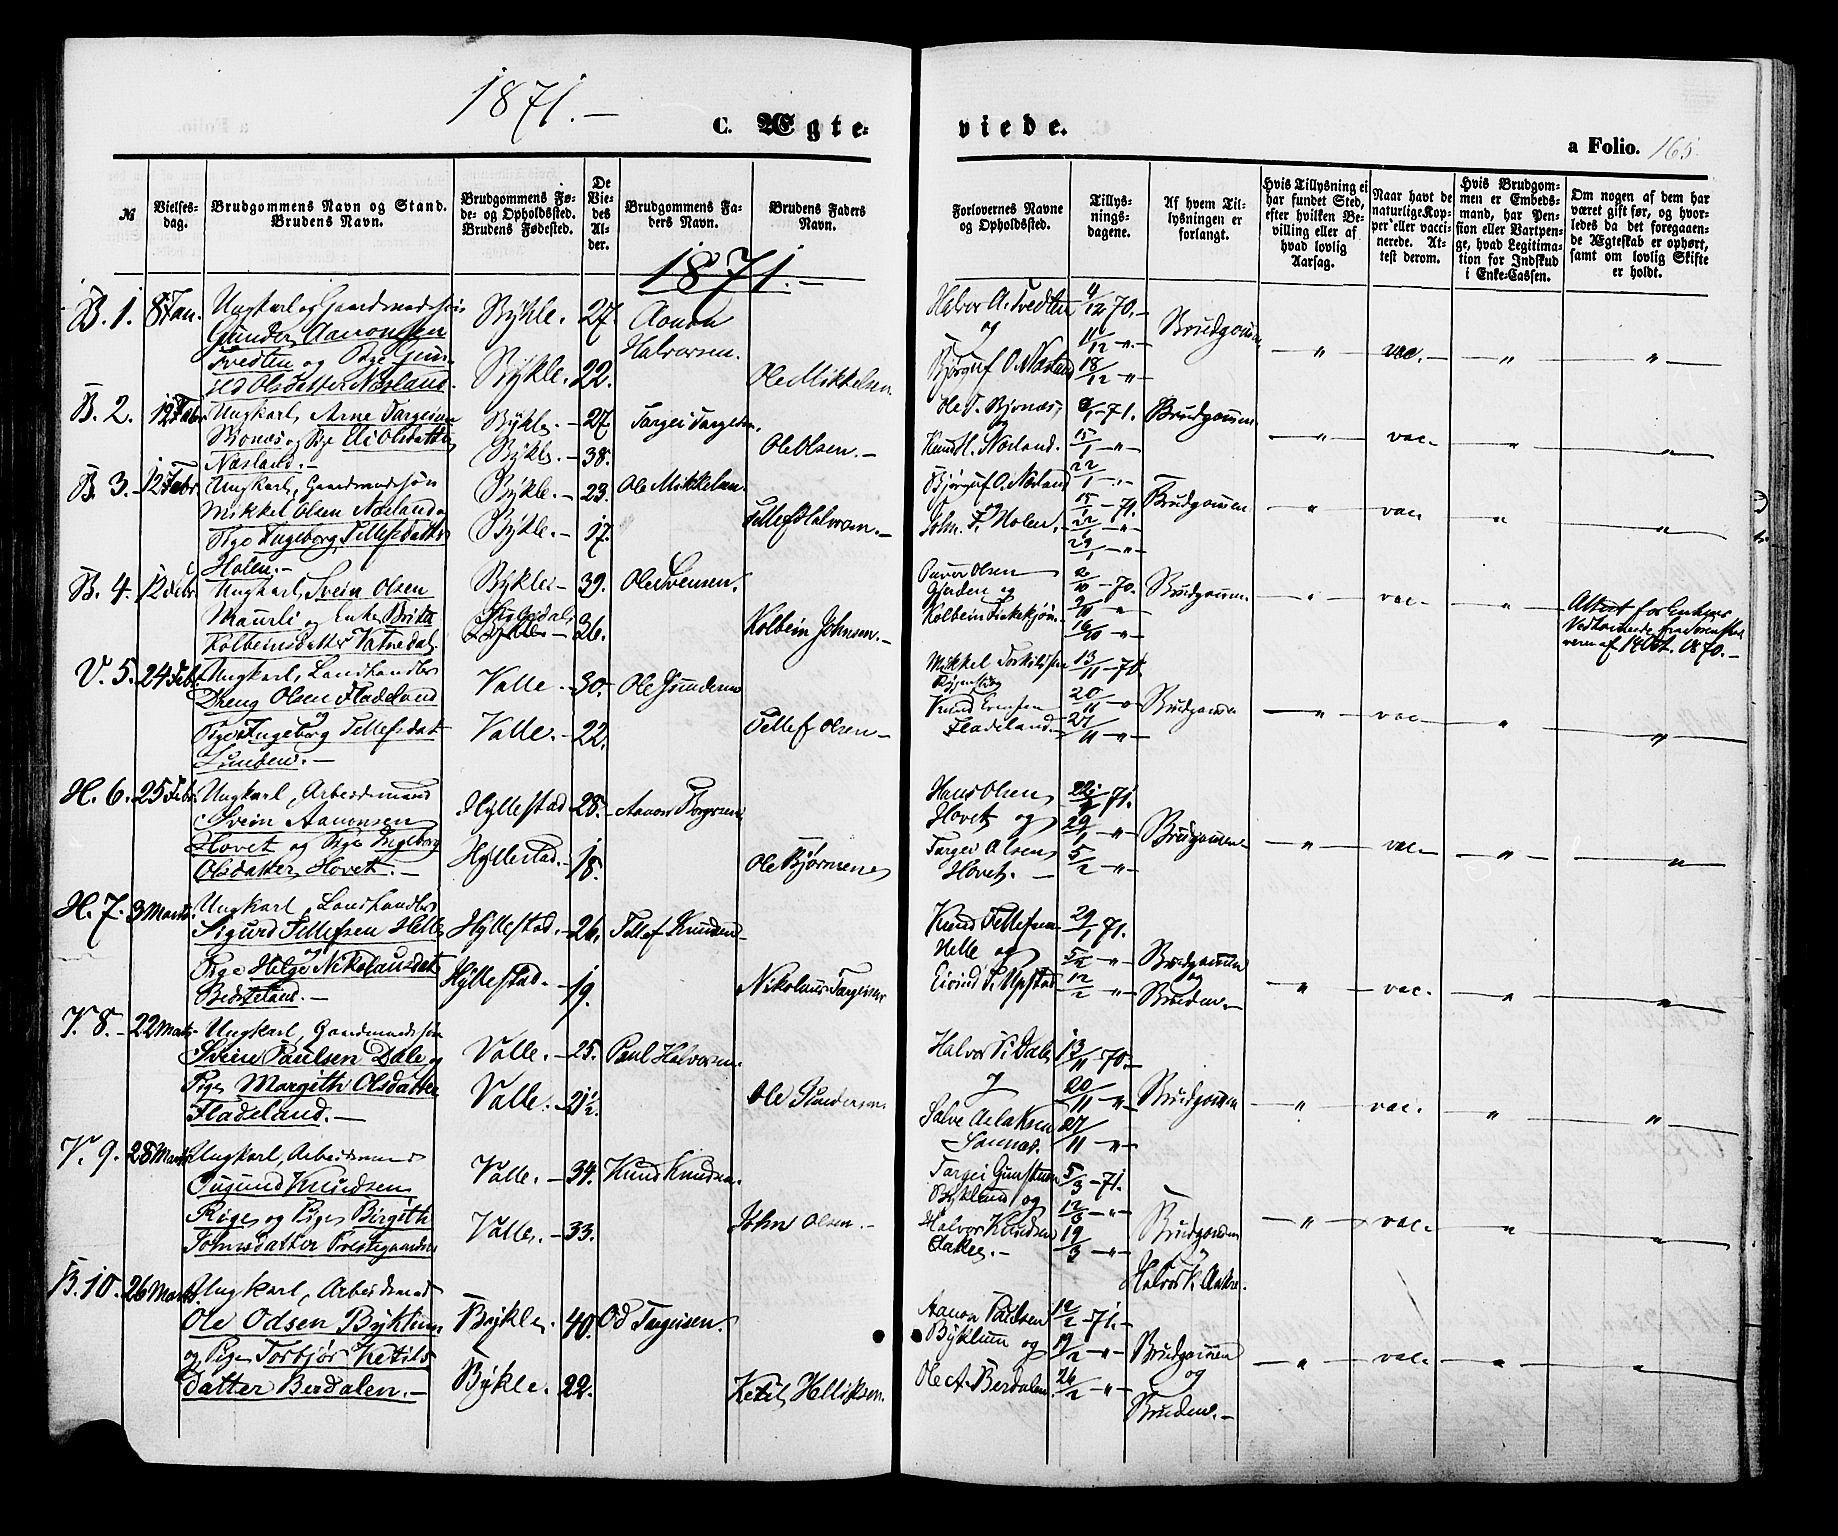 1871.–
C. Ægte=
viede.
a Folio. 165.
№
Vielses=
dag.
Brudgommens Navn og Stand.
Brudens Navn.
Brudgommens Fø=
de= og Opholdssted.
Brudens Fødested.
De
Vie=
des
Al=
der.
Brudgommens Fa=
ders Navn.
Brudens Faders
Navn.
Forlovernes Navne
og Opholdssted.
Tillys=
nings=
dagene.
Af hvem Til=
lysningen er
forlangt.
Hvis Tillysning ei
har fundet Sted,
efter hvilken Be=
villing eller af
hvad lovlig
Aarsag.
Naar havt de
naturlige Kop=
per eller vacci=
nerede. At=
test derom.
Hvis Brudgom=
men er Embeds=
mand, har Pen=
sion eller Vartpen=
ge, hvad Legitima=
tion for Indskud
i Enke=Cassen.
Om nogen af dem har
været gift før, og hvor=
ledes da det foregaaen=
de Ægteskab er ophørt,
samt om lovlig Skifte
er holdt.
1871.–
B. 1. 8 Jan. Ungkarl og Gaardmandssøn Bykle. 27. Aanon Halvor A. Tvedten 4/12 70.–
Gunder Aanonsen Halvorsen. og 11/12 „– Brudgommen
Tvedten og Pige Gun- Bykle. 22. Ole Mikkelsen Bjørguf O. Næsland 18/12 „– – „ – vac. – „ – „
ild Olsdatter Næsland.
B. 2. 12 Febr. Ungkarl, Arne Targeisen Bykle – 27. Targei Targeisen. Ole T. Bjonæs, 8/1 –71. Brudgommen
Bjonæs og Pige Eli Olsdatter Bykle – 38. Ole Olsen.– og Næsland. 15/1 –„– – „ – vac – „ – „
Næsland.– 22/1 –„–
B. 3. 12 Febr. Ungkarl, Gaardmandssøn Bykle.– 23. Ole Mikkelsen. Bjørguf O. Næsland 15/1 –71. Brudgommen
Mikkel Olsen Næsland og Bykle.– 17. Tellef Halvorsen.– og 22/1 –„– – „ – vac – „ – „
Pige Ingeborg Tellefsdatter John T. Holen.– 29/1 –„–
Holen.–
B. 4. 12 Febr. Ungkarl, Svein Olsen Bykle – 39. Ole Svensen. Olsen 2/10 –70. Brudgommen.
Maurli og Enke Brita Bykle – 36. Kolbein Johnsen.– Gjerden og 9/10 „ – „ – vac – „ – Attest for Enkens
Kolbeinsdatter Vatnedal. Kolbein 16/10 „ Vedkommende fra
af 14 Oct. 1870.–
V. 5. 24 Febr. Ungkarl, Landhandler Valle.– 30. Ole Gundersen Mikkel Torkildsen 13/11 –70.
Dreng Olsen Fladeland og 20/11 –„ Brudgommen
og Pige Ingeborg Tellefsdat Valle.– 22. Tellef Olsen– Knud 27/11 „– – „ – vac – „ – „
Lunden.– Fladeland.–
H. 6. 25 Febr. Ungkarl, Arbeidsmand Hyllestad 28. Aanon Hans Olsen 22/1 71.
Svein Aanonsen Hovet og 29/1 „– Brudgommen
Hovet og Pige Ingeborg Hyllestad.– 18. Ole Bjørnsen Targei Olsen 5/2 „– – „ – vac – „ – „
Olsdatter Hovet.– Hovet.–
H. 7. 3 Marts. Ungkarl, Landhandler Hyllestad.– 26. Tellef Knudsen– Knud Tellefsen 29/1 71.
Sigurd Tellefsen Helle Helle og 5/2 –„– Brudgommen
og Pige Helge Nikolausdat Hyllestad.– 19. Nikolaus Targeisen Eivind T. Upstad 12/2 „– og
Besteland.– Bruden.– – „ – vac – „ – „
V. 8.– 22 Marts Ungkarl, Gaardmandssøn Valle.– 25. Paul Halvorsen. Halvor P. Dale 13/11 –70.–
Svein Paulsen Dale og og 20/11 „– Brudgommen
Pige Margith Olsdatter Valle. 21½. Ole Gundersen Salve Aslaksen 27/11 „– – „ – vac – „ – „
Fladeland.–
V. 9. 28 Marts Ungkarl, Arbeidsmand Valle.– 34. Knud Knudsen. Targei 5/3 –71.
Knudsen og 12/3 –„–
Rige og Pige Birgith Valle.– 33. John Olsen.– Halvor Knudsen 19/3 –„– Brudgommen – „ – vac – „ – „
Johnsdatter Præstegaarden og
Halvor K.
B. 10. 26 Marts Ungkarl, Arbeidsmand
Ole Odsen Byklum, Bykle. 40. Od Targeisen. Aanon Paulsen 12/2 –71.–
og Pige Torbjør Ketils- Byklum og 19/2 –„– Brudgommen
datter Berdalen.– Bykle. 22. Ketil Helliksen. Ole A. Berdalen 26/2 –„– og – „ – vac – „ – „
Bruden.–